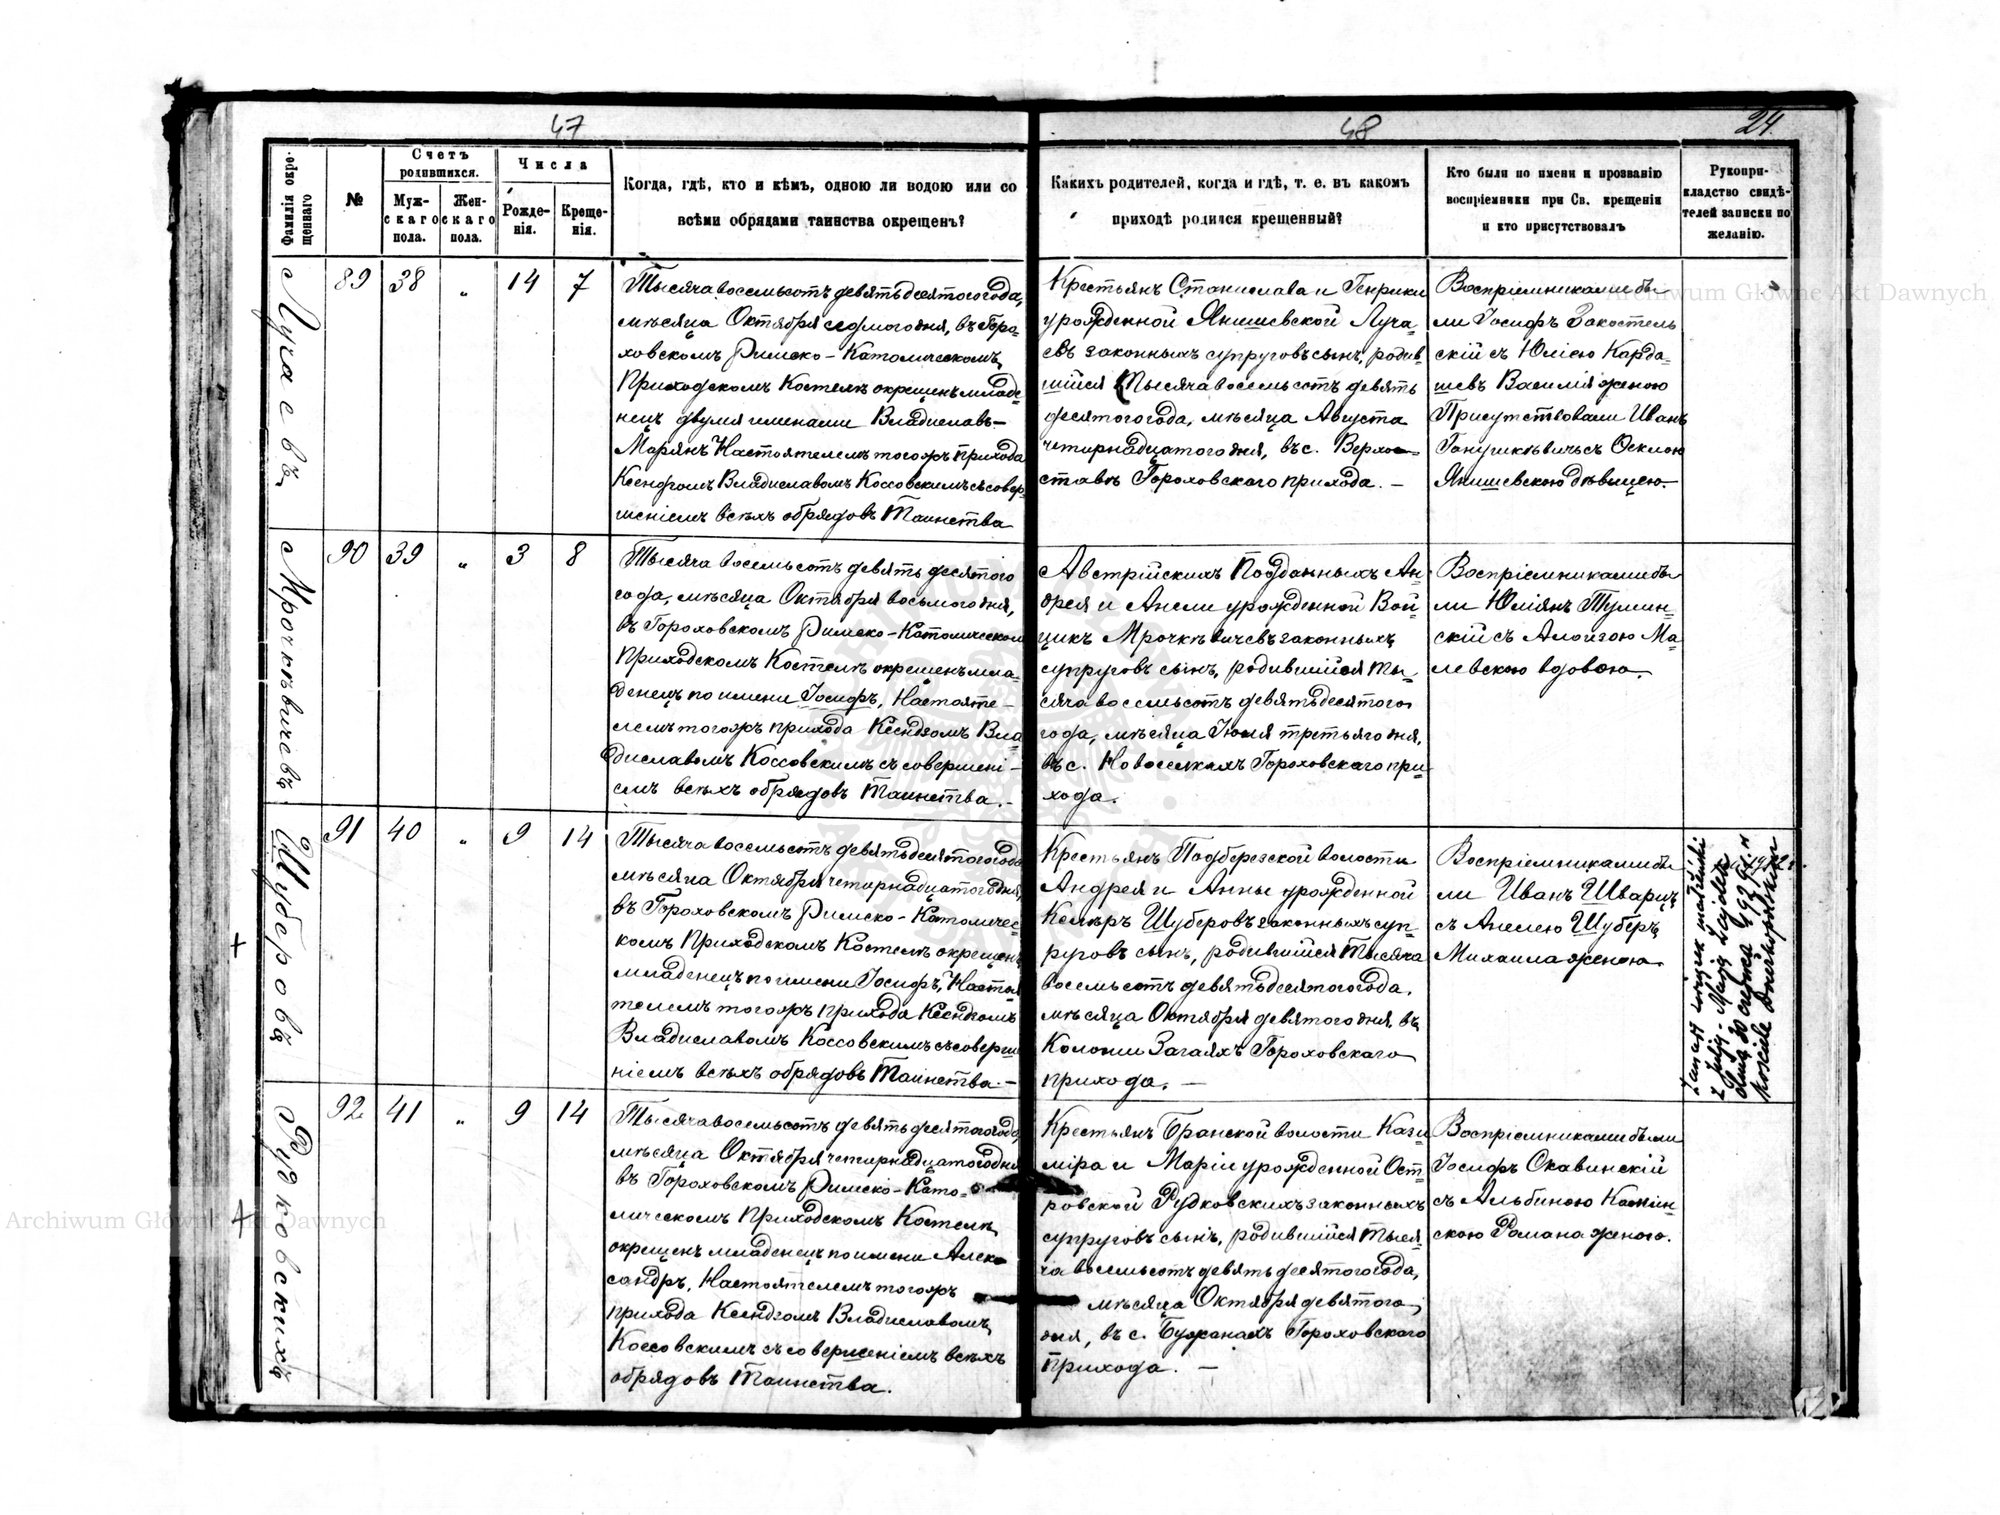 47
48
24
Фамилія окре-
щеннаго
№
Счетъ
родившихся.
Муж-
скаго
пола.
Жен-
скаго
пола.
Числа
Рожде-
нія.
Креще-
нія.
Когда, гдѣ, кто и кѣмъ, одною ли водою или со
всѣми обрядами таинства окрещенъ?
Какихъ родителей, когда и гдѣ, т. е. въ какомъ
приходѣ родился крещенный?
Кто были по имени и прозванію
воспріемники при Св. крещеніи
и кто присутствовалъ
Рукопри-
кладство свидѣ-
телей записки по
желанію.
Лучаевъ
89
38
"
14
7
Тысяча восемьсотъ девятьдесятого года,
мѣсяца Октября седмого дня, въ Горо-
ховскомъ Римско-Католическомъ
Приходскомъ Костелѣ окрещенъ младе-
нецъ двумя именами Владиславъ-
Марянъ Настоятелемъ тогожъ прихода
Ксендзомъ Владиславомъ Коссовскимъ съ совер-
шеніемъ всѣхъ обрядовъ Таинства
Крестьянъ Станислава и Генрики
урожденной Янишевской Луча-
евъ законныхъ супруговъ сынъ, родив-
шійся Тысяча восемьсотъ девять
десятого года, мѣсяца Августа
четырнадцатого дня, въ с. Верхо-
ставѣ Гороховского прихода. -
Воспріемниками бы-
ли Іосифъ Закостель
скій съ Юліею Карда-
шевъ Василія женою
Присутствовали Иванъ
Янишевскою дѣвицею.
Мрочкѣвичевъ
90
39
"
3
8
Тысяча восемьсотъ девятьдесятого
года, мѣсяца Октября восьмого дня,
въ Гороховскомъ Римско-Католическомъ
Приходскомъ Костелѣ окрещенъ мла-
денецъ по имени Іосифъ, Настояте-
лемъ тогожъ прихода Ксендзомъ Вла-
диславомъ Коссовскимъ съ совершені-
емъ всѣхъ обрядовъ Таинства. -
Австрійскихъ Подданныхъ Ан-
дрея и Анели урожденной Вой-
цикъ Мрочкѣвичевъ законныхъ
супруговъ сынъ, родившійся ты-
сяча восемьсотъ девятьдесятого
года, мѣсяца Іюля третьяго дня,
въ с. Новоселкахъ Гороховскаго при-
хода.
Воспріемниками бы-
ли Юліянъ Тумин-
скій съ Алоизою Ма-
левскою вдовою.
Шуберовъ
91
40
"
9
14
Тысяча восемьсотъ девятьдесятого года
мѣсяца Октября четырнадцатого дня,
въ Гороховскомъ Римско-Католичес-
комъ Приходскомъ Костелѣ окрещенъ
младенецъ по имени Іосифъ, Настоя-
телемъ тогожъ прихода Ксендзомъ
Владиславомъ Коссовскимъ съ соверше-
ніемъ всѣхъ обрядовъ Таинства. -
Крестьянъ Подберезской волости
Андрея и Анны урожденной
Келеръ Шуберовъ законныхъ суп-
руговъ сынъ, родившійся Тысяча
восемьсотъ девятьдесятого года,
мѣсяца Октября девятого дня, въ
Колоніи Загаяхъ Гороховскаго
прихода. -
Воспріемниками бы-
ли Иванъ Шварцъ
съ Анелею Шуберъ
Михаила женою.
Zawarł związek małżeński
z Julją-Marją
dnia 30 czerwca
kościele
Рудковскихъ
92
41
"
9
14
Тысяча восемьсотъ девятьдесятого года,
мѣсяца Октября четырнадцатого дня
въ Гороховскомъ Римско-Като-
лическомъ Приходскомъ Костелѣ
окрещенъ младенецъ по имени Алек-
сандръ, Настоятелемъ тогожъ
прихода Ксендзомъ Владиславомъ
Коссовскимъ съ совершеніемъ всѣхъ
обрядовъ Таинства.
Крестьянъ Бранской волости Кази-
міра и Маріи урожденной Ост-
ровской Рудковскихъ законныхъ
супруговъ сынъ, родившійся тыся-
ча восемьсотъ девятьдесятого года,
мѣсяца Октября девятого
дня, въ с. Бужанахъ Гороховского
прихода. -
Воспріемниками были
Іосифъ Скавинскій
съ Альбиною Камин-
скою Романа женою.
Archiwum Główne Akt Dawnych
Archiwum Główne Akt Dawnych